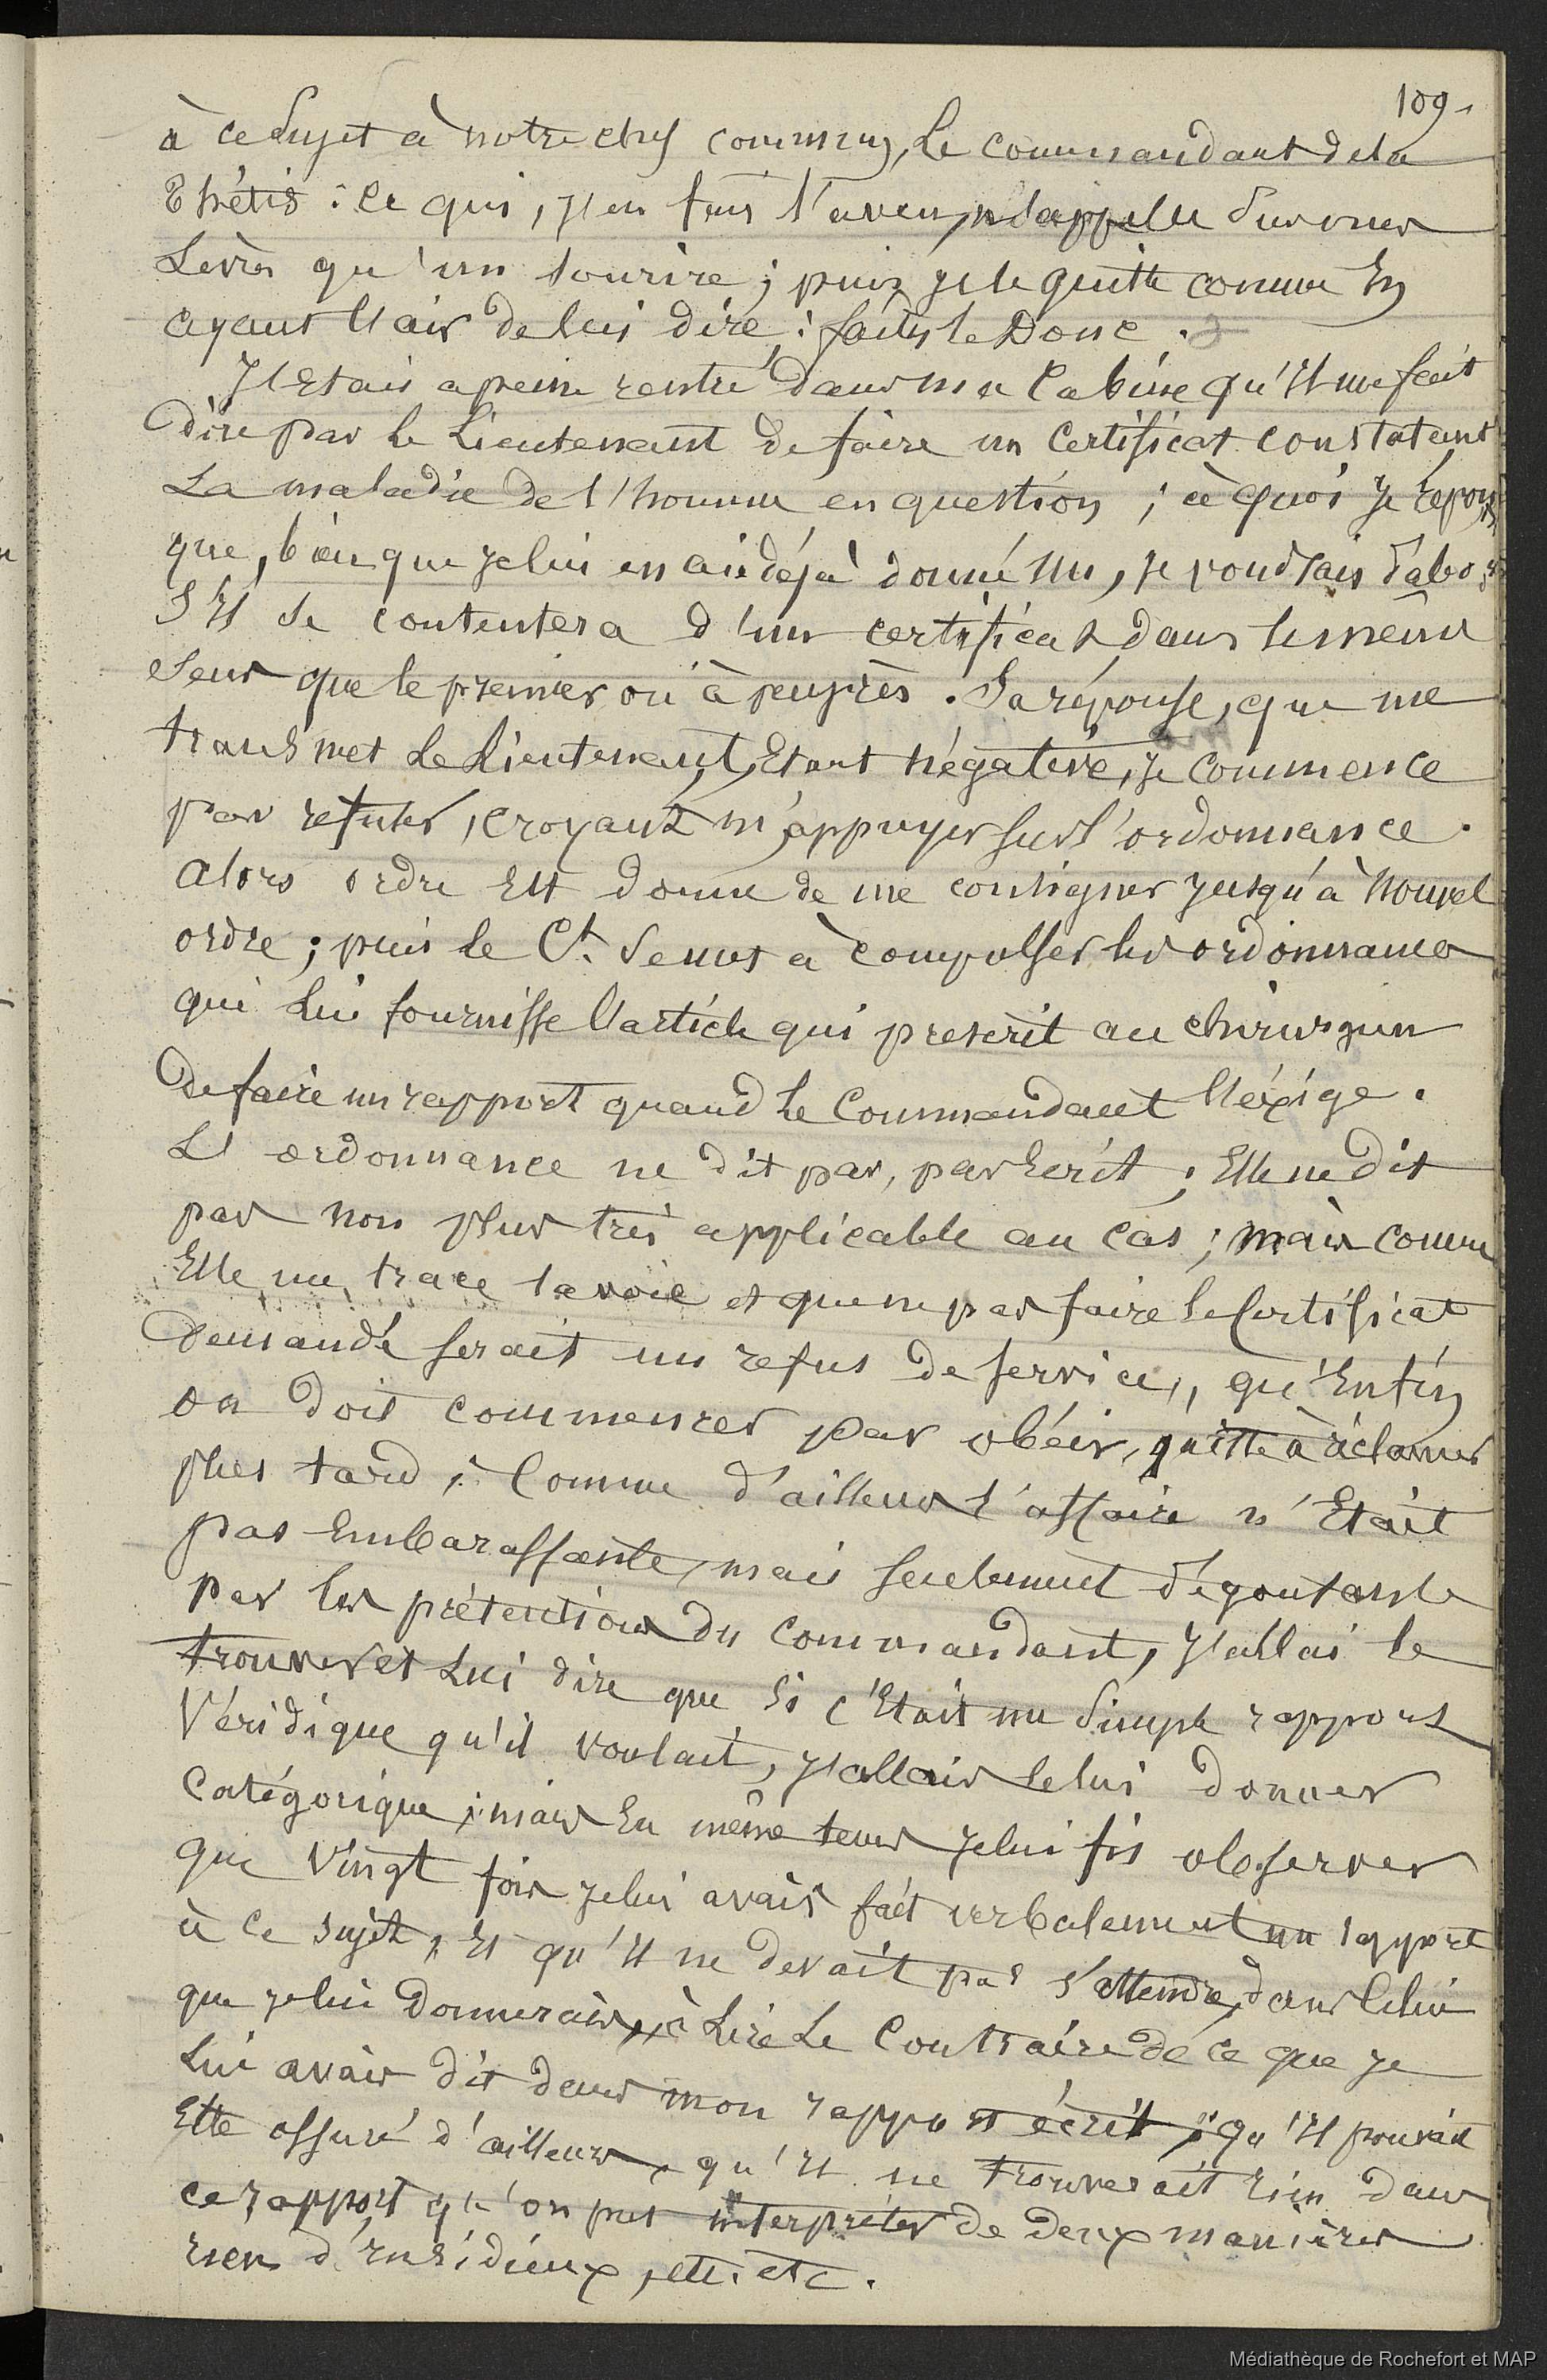 109.
à ce sujet à notre chef commun, Le commandant de la
Thétis : Ce qui, j'en fais l'aveu, n'appelle sur mes
Lèvres qu'un sourire ; puis je le quitte comme En
ayant l'air de lui dire : faites le Donc .
J'Etais a peine rentré dans ma Cabine qu'il me fait
Dire par le Lieutenant de faire un Certificat constatant
La maladie de l'homme en question ; à quoi je répons
que, bien que je lui en aie déjà donné un, je voudrais d'abord
S'Il se contentera d'un certificat dans le même
sens que le premier ou à peu près . Sa réponse, que me
transmet Le Lieutenant, Etant négative, je commence
par refuser, croyant m'appuyer sur l'ordonnance .
Alors ordre Est donné de me consigner jusqu'à nouvel
ordre ; puis le Ct. se met à compulser les ordonnances
qui Lui fournisse l'article qui prescrit au chirurgien
De faire un rapport quand le Commandant l'éxige .
L'ordonnance ne dit pas, par Ecrit ; Elle ne dit
pas non plus très applicable au cas ; mais comme
Elle me trace la voie et que ne pas faire le Certificat
Demandé serait un refus de service, qu'Enfin
on doit commencer par obéir, quitte à réclamer
plus tard ; Comme d'ailleurs l'affaire n'Etait
pas Embarassante, mais seulement dégoutante
par les prétentions du Commandant, J'allai le
trouver et Lui dire que si c'Etait un simple rapport
Véridique qu'il voulait, J'allais le lui donner
Catégorique ; mais En même tems je lui fis observer
que Vingt fois je lui avais fait verbalement un rapport
à ce sujet, Et qu'Il ne devait pas s'attendre, dans Celui
que je lui Donnerais, à Lire Le Contraire de ce que je
Lui avais dit dans mon rapport écrit, qu'Il pouvait
Etre assuré d'ailleurs, qu'Il ne trouverait rien dans
ce rapport qu'on put interpréter de deux manières
rien d'Insidieux, etc. etc.
Médiathèque de Rochefort et MAP